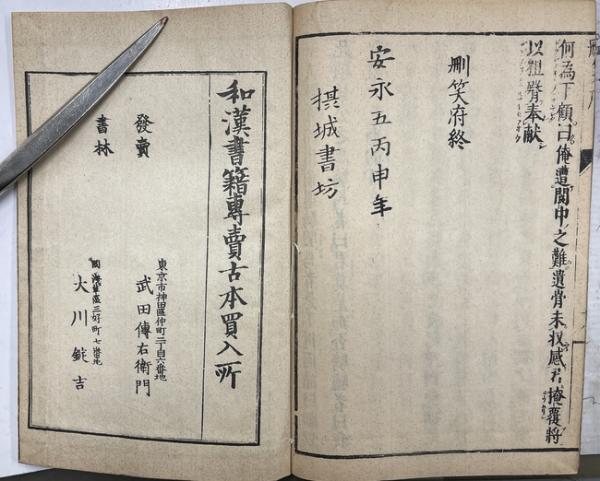 何為下顧曰俺遭閹中之難遺骨未収感君掩覆將
以粗脊奉献
刪笑府終
安永五丙申年
摂城書坊
和漢書籍專賣古本買入所
發賣
書林
東京市神田區仲町二丁目六番地
武田傳右衛門
同淺草區三好町七番地
大川錠吉